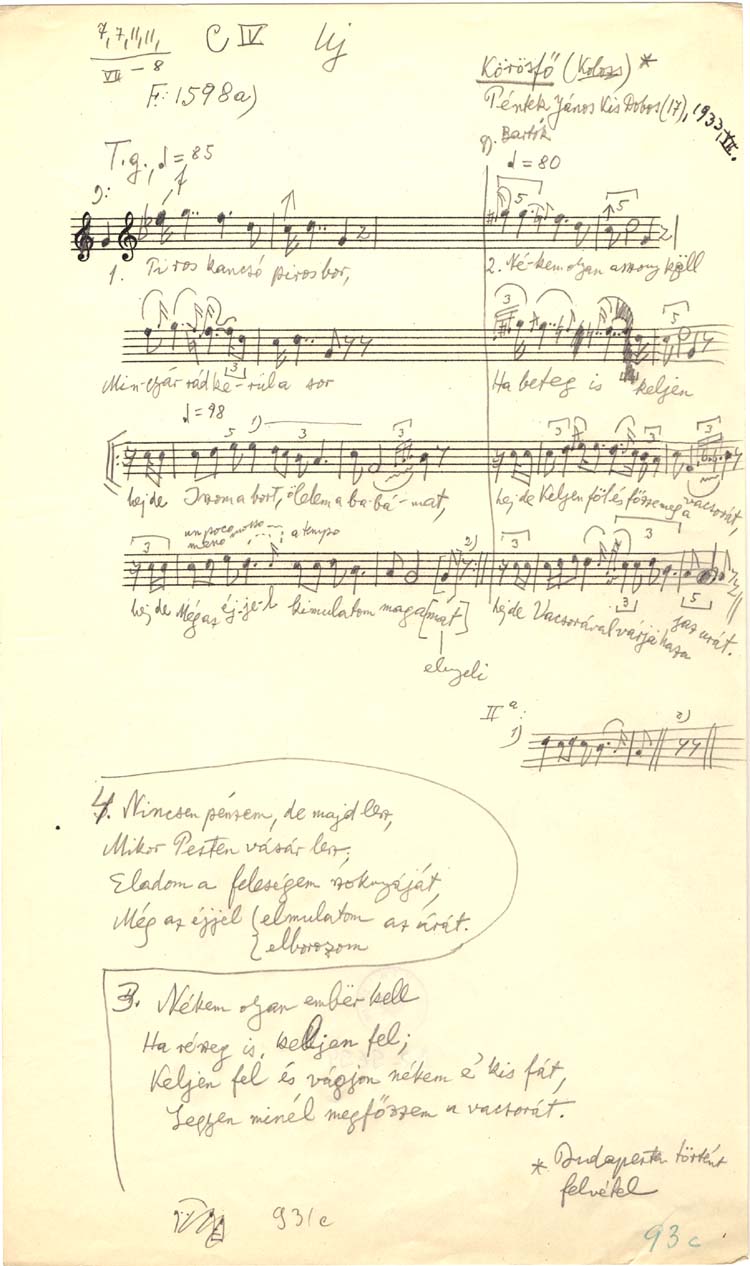 7, 7, 11, 11,
VII – 8
C IV
Uj
F: 1598a)
Körösfő (Kolozs) *
Péntek János Kis Dobos (17), 1933, XII.
gy. Bartók
T. g., ♩ = 85
♩ = 80
1. Piros kancsó piros bor,
2. Né-kem olyan asszony këll
Min-gyár rád ke-rül a sor
Ha beteg is keljen
♩ = 98
1)
hej de Iszom a bort, ölelem a ba-bá-mat,
hej de Keljen föl és főzze meg a vacsorát,
un poco meno mosso
a tempo
2)
hej de Még az éj-je-l kimulatom maga[mat]
hej de Vacsorával várja haza
jaz urát.
elnyeli
IIª:
1)
2)
4. Nincsen pénzem, de majd lesz,
Mikor Pesten vásár lesz;
Eladom a feleségem szoknyáját,
Még az éjjel { elmulatom az árát.
{ elborozom
3. Nékem olyan embër kell
Ha részeg is, keljen fel;
Keljen fel és vágjon nékem e' kis fát,
Legyen minél megfőzzem a vacsorát.
* Budapesten történt
felvétel
931c
93c